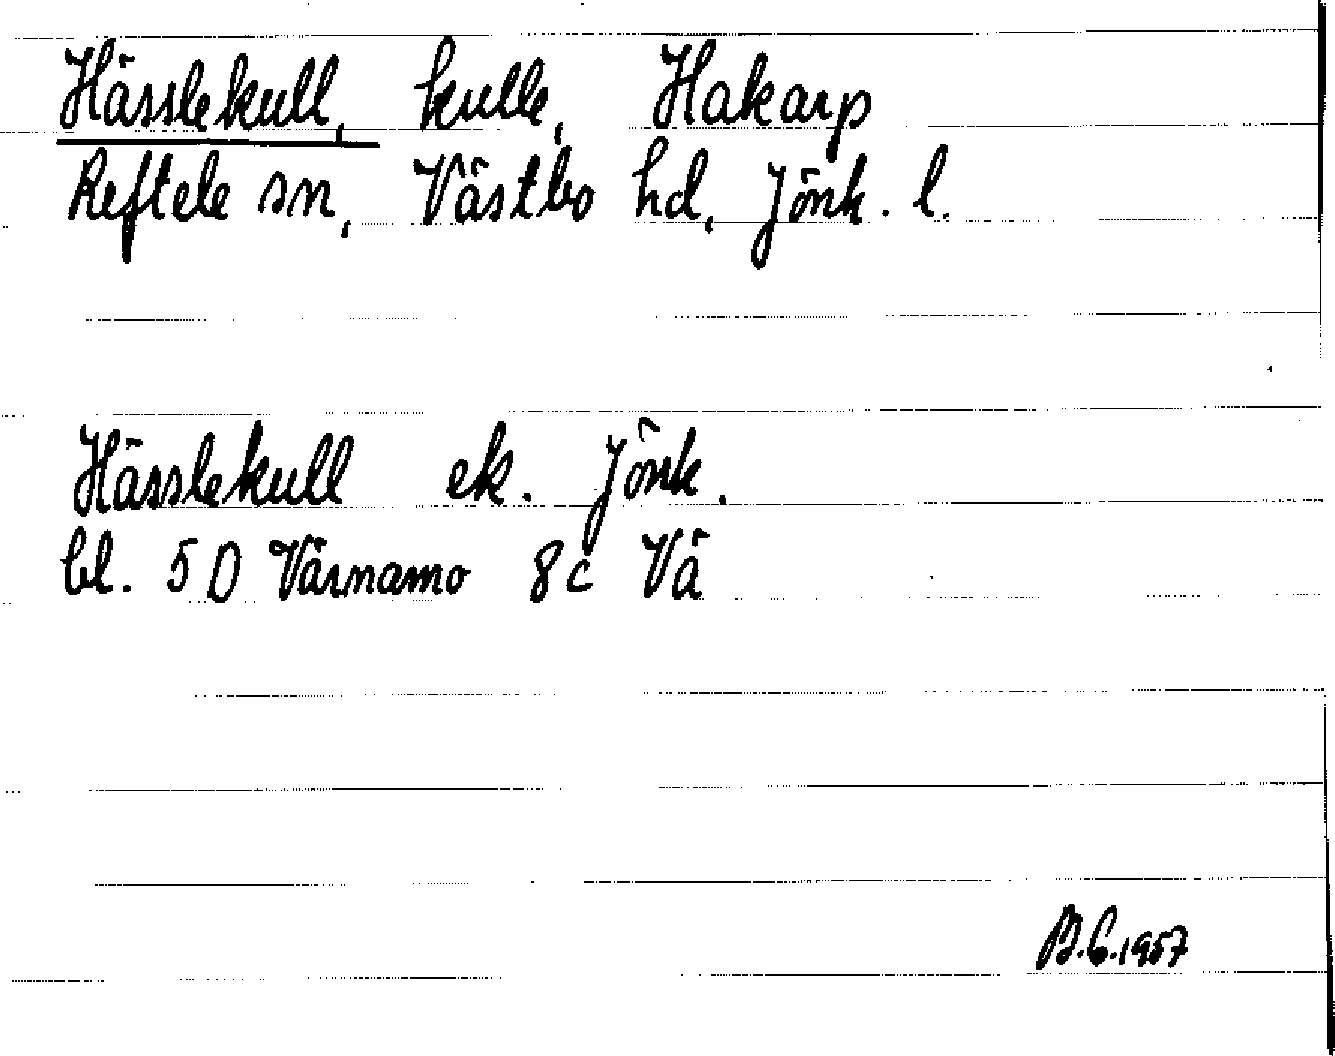 Hässlekull, kulle, Hakarp
Reftele sn, Västbo hd, Jönk. l.
Hässlekull ek. Jönk.
bl. 5 D Värnamo 8 c Vä
B.G.1957